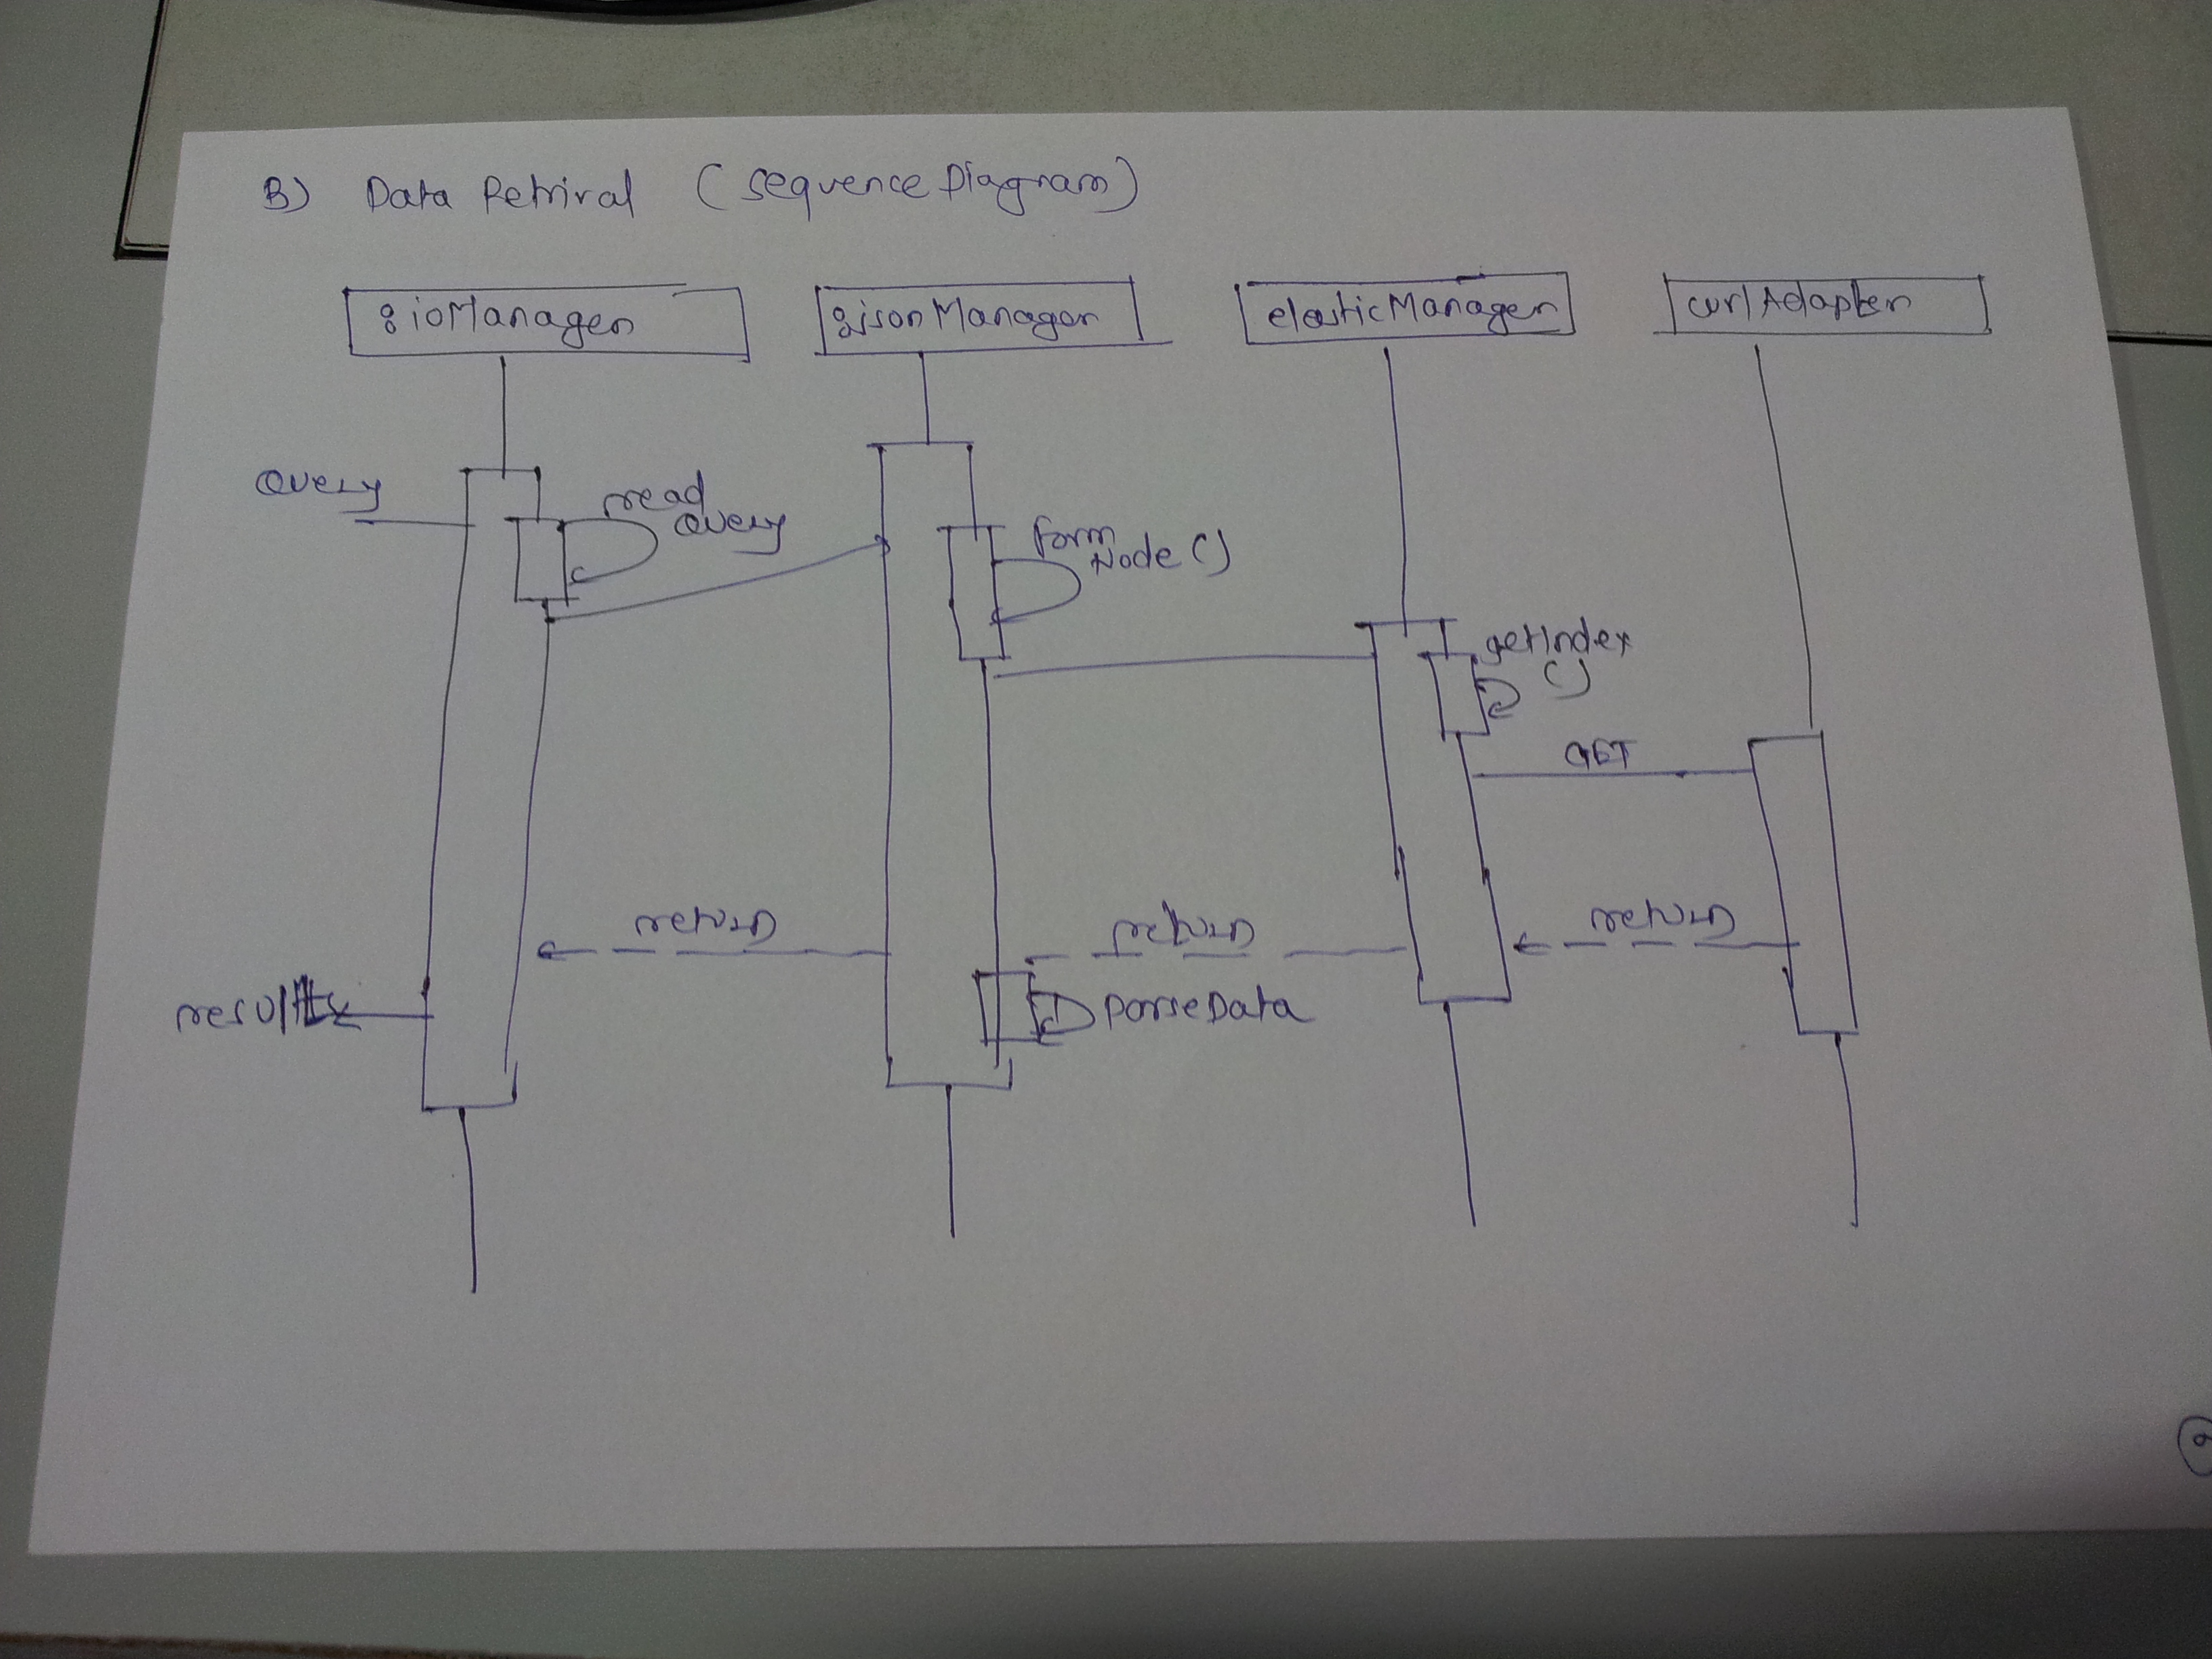 B) Data Retrival (Sequence Diagram)
:ioManager
:jsonManager
elasticManager
curlAdapter
Query
read
Query
form
Node ()
getIndex
()
GET
return
return
return
results
parseData